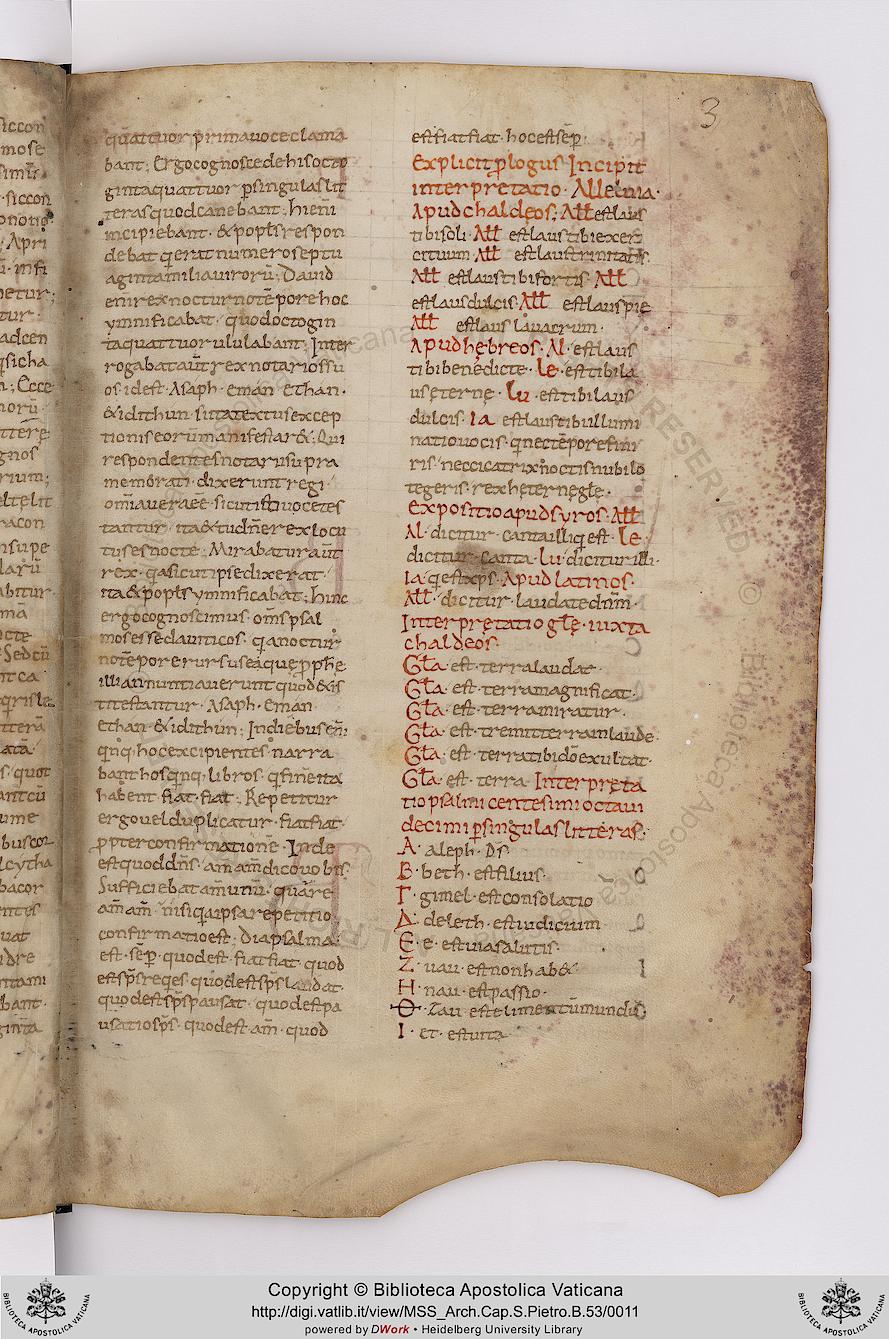 3
quattuor prima uoce clama
bant; Ergo cognosce de his octo
ginta quattuor p̱ singulas lit
teras quod canebant; hieñi
incipiebant· & popłs respon
debat q̇ erat numero septu
aginta milia uirorū; Dauid
enim rex nocturno tēpore hoc
ymnificabat· quod octogin
ta quattuor ululabant; Inter
rogabat aūt rex notarios su
os· id est· Asaph· eman· ethan·
& idithun· si ita textus excep
tionis eorū manifestar&; Qui
respondentes notarii supra
memorati· dixerunt regi·
om̄ia uera eē· sicut isti uoce tes
tantur· ita & tu dn̄e rex locu
tus es nocte; Mirabatur aūt
rex· q̇a sicut ipse dixerat·
ita & popłs ymnificabat; hinc
ergo cognoscimus· om̄s psal
mos esse dauiticos· q̇a noctur
no tēpore rursus ea quę p̱phe
illi annuntiauerunt quod & is
ti testantur· Asaph· eman·
ethan· & idithun; Indiebus eñ·
qinq· hoc excipientes· narra
bant hos qinq· libros· q̇ finē ita
habent· fiat fiat; Repetitur
ergo uel duplicatur· fiat fiat·
p̱pter confirmationē· Inde
est quod dn̄s· am̄ am̄ dico uobis·
Sufficiebat am̄ unū· quare
am̄ am̄· nisi q̇a ipsa repetitio
confirmatio est; Diapsalma·
est· sēp̱· quod est· fiat fiat· quod
est sp̄s reqes· quod est sp̄s laudat·
quod est sp̄s pausat· quod est pa
usatio sp̄s· quod est am̄· quod
est fiat fiat· hoc est sēp̱·
Explicit p̱logus· Incipit
interpretatio· Alleluia·
Apud chaldeos; Ałł est laus
tibi soli· Ałł est laus tibi exer
cituum· Ałł est laus trinitatis·
Ałł est laus tibi fortis· Ałł
est laus dulcis· Ałł est laus pie
Ałł est laus lauacrum·
Apud hebreos· Al· est laus
tibi benedicte· le· est tibi la
us eterne· lu· est tibi laus
dulcis· ia est laus tibi illumi
natio uocis· q̇ nec tēpore fini
ris· nec cicatrix noctis nubilo
tegeris· rex heterne głę·
Expositio apud syros· Ałł
Al· dicitur cantailli q̇ est· le·
dicitur canta· lu· dicitur illi·
ia· q̇ est xp̄s· Apud latinos·
Ałł· dicitur· laudate dn̄m·
Interpretatio głę· iuxta
chaldeos·
Gła· est· terra laudat·
Gła· est· terra magnificat·
Gła· est· terra miratur·
Gła· est· tremit terra in laude·
Gła· est· terra tibi dō exultat·
Gła· est· terra· Interpreta
tio psalmi centesimi octaui
decimi p̱ singulas litteras·
A· aleph· Ds̄·
B· beth· est filius·
Γ· gimel· est consolatio
Δ· deleth· est iudicium
E· e· est uia salutis·
Z· uau· est non hab&·
H· nau· est passio·
Θ· Zau· est elimentū mundi·
I· et· est uita
Copyright © Biblioteca Apostolica Vaticana
http://digi.vatlib.it/view/MSS_Arch.Cap.S.Pietro.B.53/0011
powered by DWork • Heidelberg University Library